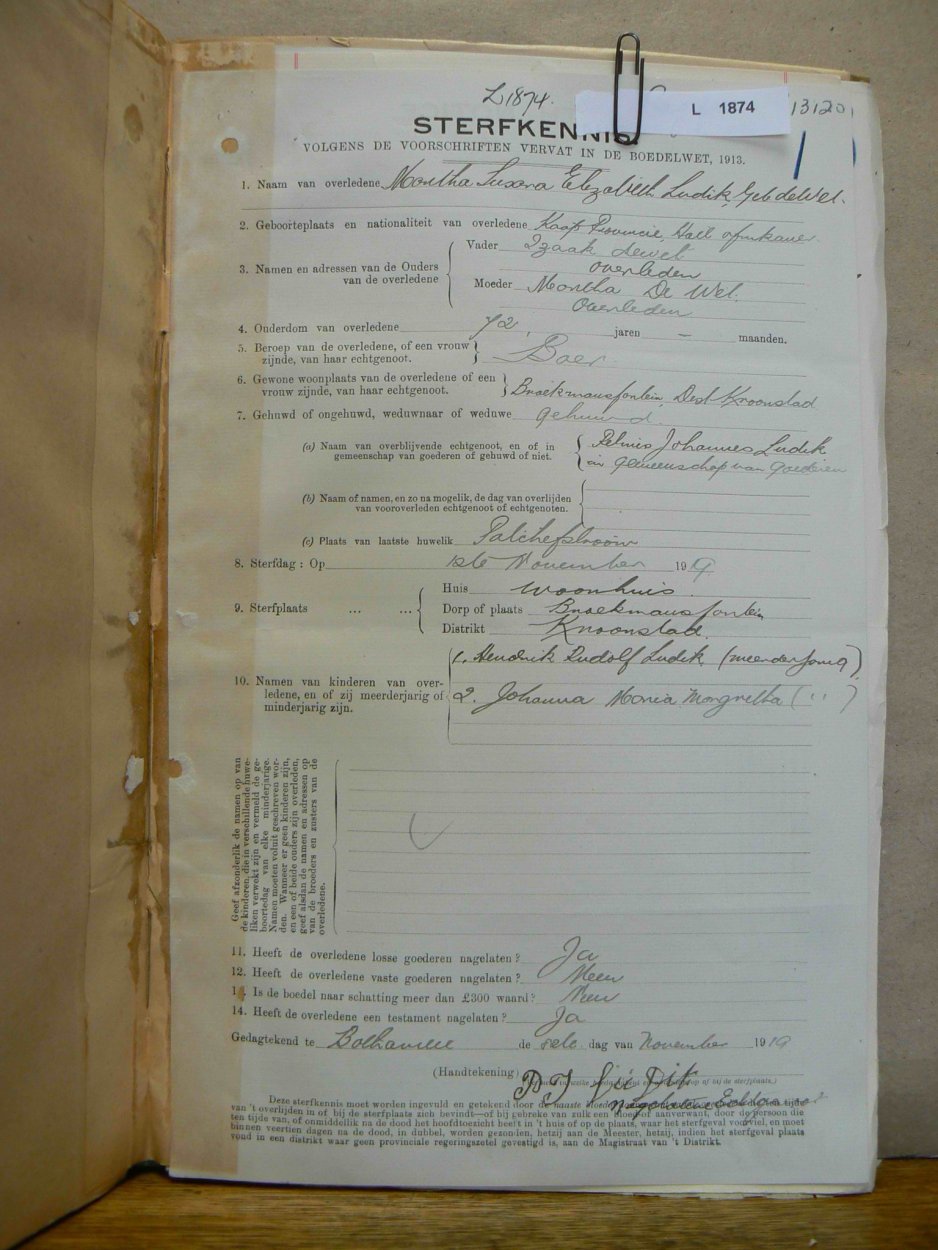 L1874.
L 1874
13120
STERFKENNIS.
VOLGENS DE VOORSCHRIFTEN VERVAT IN DE BOEDELWET, 1913.
1. Naam van overledene Martha Susara Elizabeth Ludik, Geb de Wet.
2. Geboorteplaats en nationaliteit van overledene Kaap Provincie, Holl Afrikaner.
3. Namen en adressen van de Ouders van de overledene
Vader Izaak dewet
overleden
Moeder Martha De Wet.
Overleden
4. Ouderdom van overledene 72, jaren — maanden.
5. Beroep van de overledene, of een vrouw
zijnde, van haar echtgenoot. Boer
6. Gewone woonplaats van de overledene of een
vrouw zijnde, van haar echtgenoot. Broekmansfontein, Dist Kroonstad
7. Gehuwd of ongehuwd, weduwnaar of weduwe gehuwd.
(a) Naam van overblijvende echtgenoot, en of in Petrus Johannes Ludik
gemeenschap van goederen of gehuwd of niet. in gemeenschap van goederen
(b) Naam of namen, en zo na mogelik, de dag van overlijden
van vooroverleden echtgenoot of echtgenoten.
(c) Plaats van laatste huwelik Patchefstroom
8. Sterfdag : Op 1ste November 1919
9. Sterfplaats ... ...
Huis woonhuis.
Dorp of plaats Broekmansfontein
Distrikt Kroonstad.
10. Namen van kinderen van over-
ledene, en of zij meerderjarig of
minderjarig zijn.
1. Hendrik Rudolf Ludik (meerderjarig)
2. Johanna Maria Margretha ( " )
Geef afzonderlik de namen op van
de kinderen, die in verschillende huwe-
liken verwekt zijn en vermeld de ge-
boortedag van elke minderjarige.
Namen moeten voluit geschreven wor-
den. Wanneer er geen kinderen zijn,
en een of beide ouders zijn overleden,
geef alsdan de namen en adressen op
van de broeders en zusters van de
overledene.
11. Heeft de overledene losse goederen nagelaten ? Ja
12. Heeft de overledene vaste goederen nagelaten ? Neen
13. Is de boedel naar schatting meer dan £300 waard ? Neen
14. Heeft de overledene een testament nagelaten ? Ja
Gedagtekend te Bothaville de dag van November 1919
(Handtekening) P J Lü Dik
Deze sterfkennis moet worden ingevuld en getekend door de naaste bloed
van 't overlijden in of bij de sterfplaats zich bevindt—of bij gebreke van zulk een bloed- of aanverwant, door de persoon die
ten tijde van, of onmiddellik na de dood het hoofdtoezicht heeft in 't huis of op de plaats, waar het sterfgeval voorviel, en moet
binnen veertien dagen na de dood, in dubbel, worden gezonden, hetzij aan de Meester, hetzij, indien het sterfgeval plaats
vond in een distrikt waar geen proviciale regeringszetel gevestigd is, aan de Magistraat van 't Distrikt.